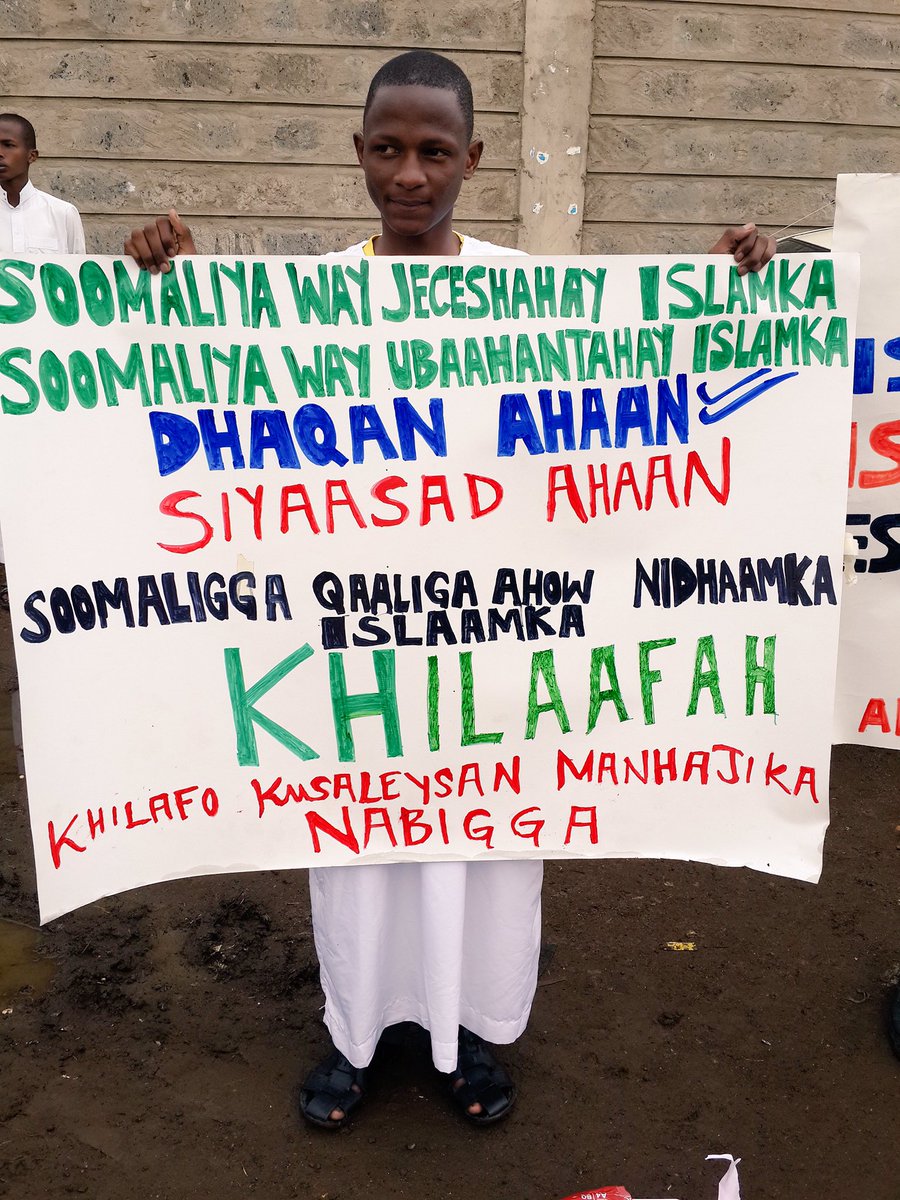 SOOMALIYA WAY JECESHAHAY ISLAMKA
SOOMALIYA WAY UBAAHANTAHAY ISLAMKA
DHAQAN AHAAN
SIYAASAD AHAAN
SOOMALIGGA QAALIGA AHOW NIDHAAMKA
ISLAAMKA
KHILAAFAH
KHILAFO KUSALEYSAN MANHAJIKA
NABIGGA